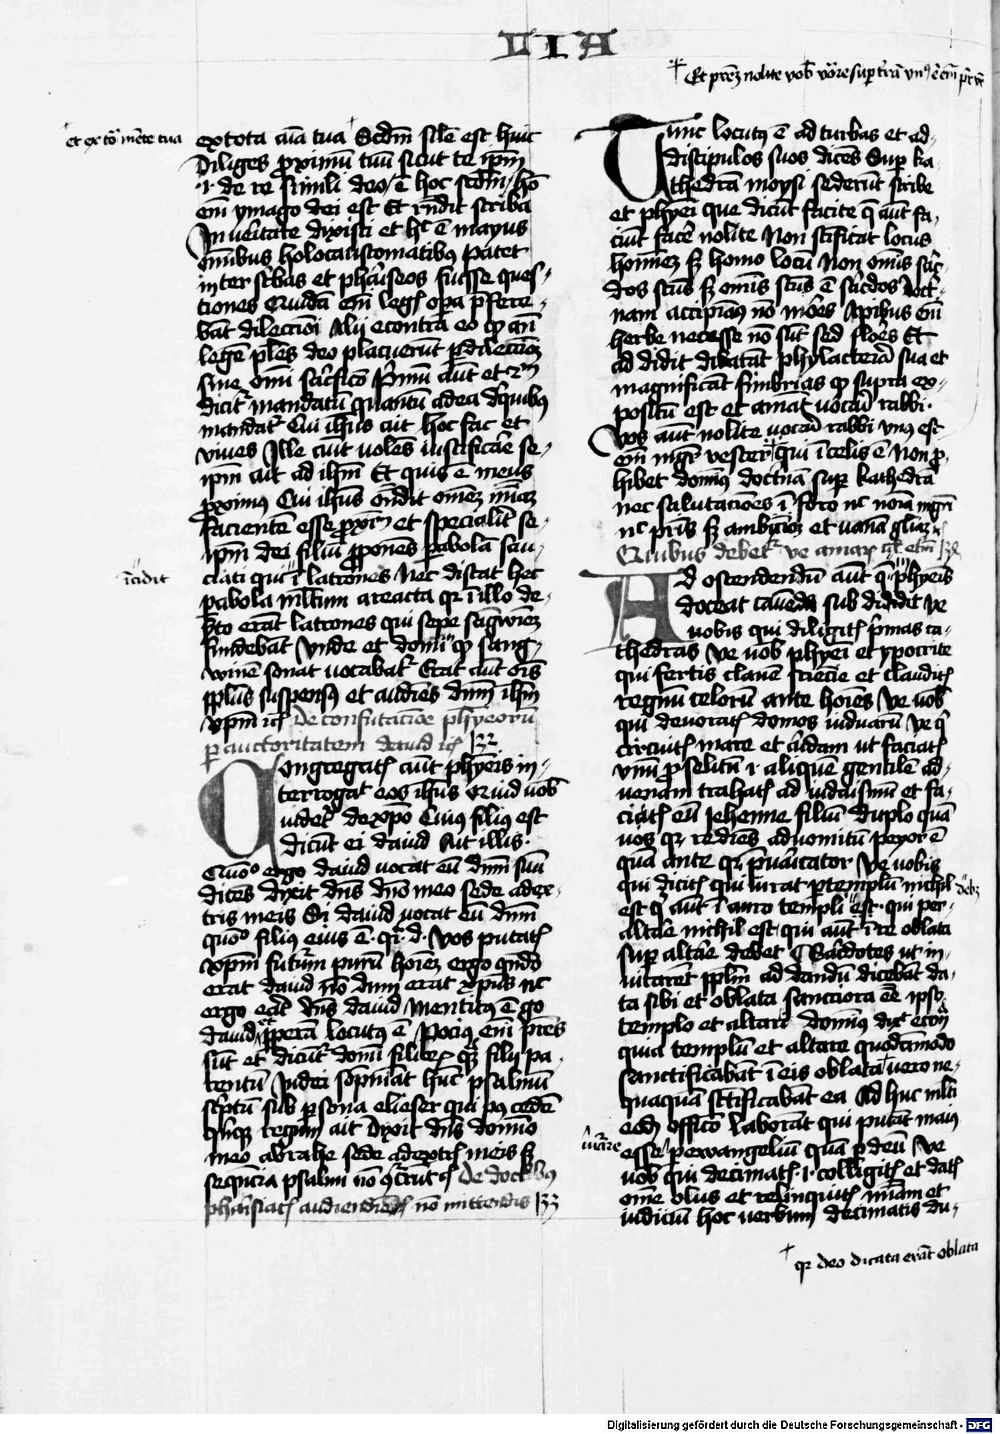 VIA
Et prem nolite vob vocare sup terra vnus e em pr vr
et ex tota mente tua
ex tota aia tua Scdm sile est huic
Diliges proximu tuu sicut te ipm
.i. de re simili deo e hoc scdm ho
em ymago dei est Et rndit scriba
In ueritate dixisti et hc e mayus
omibus holocaustomatibus Patet
inter scbas et phariseos fuisse ques-
tiones Quida em legis opa pfere-
bat dilectioi Alij econtra eo qp an
lege ples deo placuerunt p dilectioz
sine omi sacficio Primu aut et
dicit mandatu quantu ad ea de quibus
mandat Cui ihus ait hoc fac et
viues Ille aut uoles iustificare se-
ipm ait ad ihm Et quis e meus
proximus Cui ihus ondit omez miaz
faciente esse proxm et specialit se-
ipm dei filiu pponens pabola sau-
ciati qui i latrones Nec distat hec
incidit
pabola mltum a reacta qr i illo de-
erat latrones qui sepe sagwiez
fundebat Vnde et domi qp sang-
winem sonat uocabat Erat aut ois
pplus suspensus et audies dnm ihm
xpm De confutacioe phyeoru
p auctoritatem dauid
Congregatis aut phyeis in-
terrogat eos ihus Quid uob
uidetr de xpo Cuius filius est
dicut ei dauid Ait illis.
Quo ergo dauid vocat eu dnm suu
dices Dixit dns dno meo sede a dex-
tris meis Si dauid uocat eu dnm
quo filius eius e. q. d. vos putatis
xpm futurm puru hoiez ergo qndo
erat dauid no dum erat xpus nc
ergo erat dns dauid Mentitus e go
dauid et pperam locutus e Pocius em pres
sut et dicut domi filiorum qz filij pa-
rentu Iudei sopniat huc psalmu
scptu sub psona elieser qui
reges ait Dixit dns domio
meo abrahe sede a dextris meis sz
sequencia psalmi no De doctribus
pharisiatis audiendis no imitendis
Tunc locutus e ad turbas et ad
discipulos suos dices Sup ka-
thedra moysi sederut scribe
et phyei que dicut facite q aut fa-
ciut face nolite Non sctificat locus
homiez sz homo locu Non omis sac-
dos sctus sz omis sctus e sacdos Doct-
nam accipiam9 no mores Apibus em
herbe necesse no sut sed flores Et
ad didit dilatat phylacteria sua et
magnificat fimbrias qp supra ex-
positu est et amat uocari rabbi.
Vos aut nolite uocari rabbi vnus est
em mgr vester qui i celis e Non p-
hibet domius doctrina sup kathedra
nec salutacioes i foro nc noia mgri
nc pris sz ambicioz et uana gliaz
Quibus debet ve amar
Ad ostendendu aut q phyeis
doceat cauenda sub didit ve
uobis qui diligitis primas ca-
thedras Ve uob phyei et ypocrite
qui fertis clauem sciecie et clauditis
regnu celoru ante hoies Ve uob
qui deuoratis domos uiduaru Ve q
circuitis mare et aridam ut faciatis
vnu pselitu .i. aliquem gentile ad-
uenam trahatis ad iudaismu et fa-
ciatis eu Jehenne filiu duplo qua
uos qr rediens ad uomitu peyor e
qua ante qr puaricator Ve uobis
qui dicitis qui iurat p templu nichil
debz
est q aut i auro templi est. qui per-
altare nichil est qui aut i re oblata
sup altare debet Sacdotes ut in-
uitaret pplm ad dandu dicebat da-
ta sibi et oblata sanctiora ee ipso
templo et altari domius dixit econtra
quia templu et altare quodamodo
sanctificabat i eis oblata uero ne-
quaqua sctificabat ea Ad huc mlti
eod officio laborat qui putat maius
iurare
esse p ewangeliu qua p deu Ve
uob qui decimatis .i. colligitis et datis
ome olus et relinquitis miam et
iudiciu hoc uerbum decimatis du-
qr deo dicata erat oblata
Digitalisierung gefördert durch die Deutsche Forschungsgemeinschaft - DFG